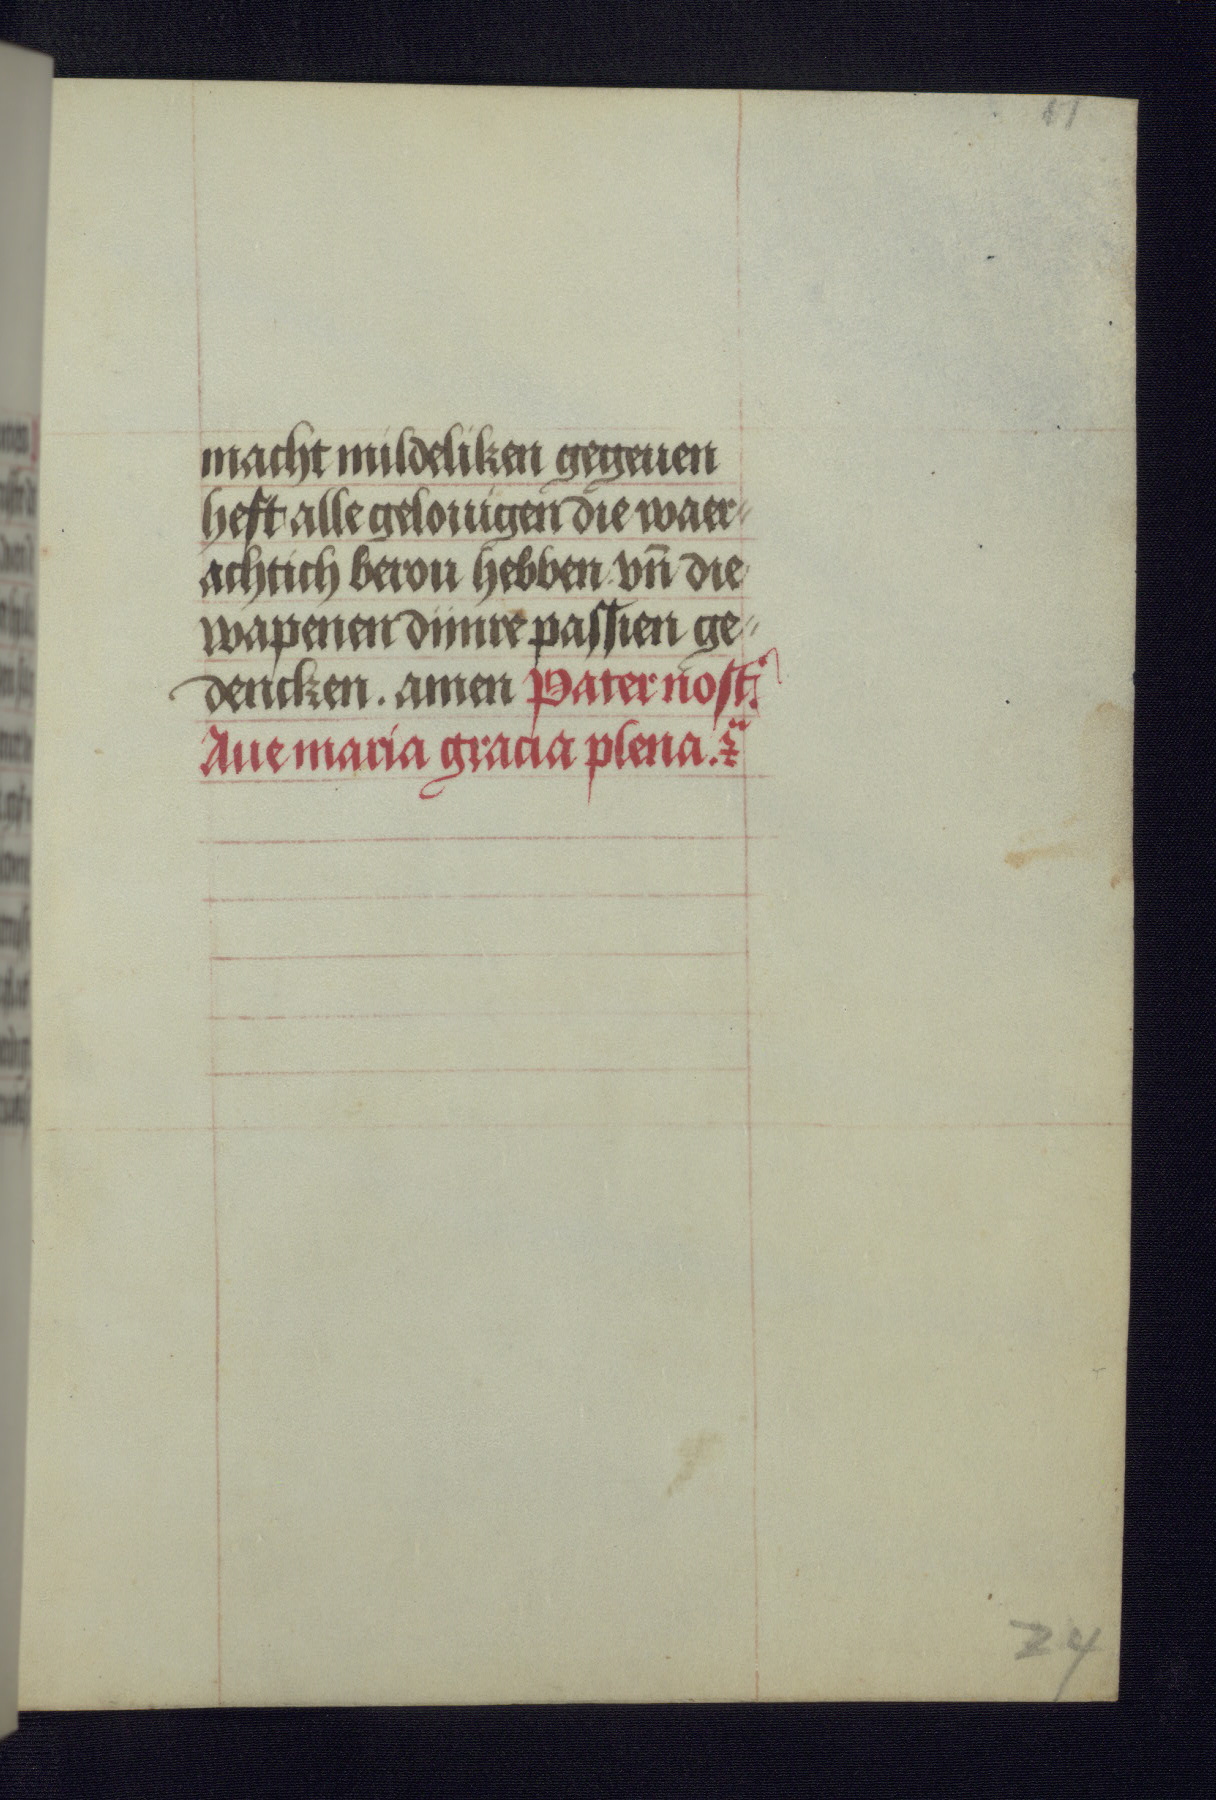 macht mildeliken gegeuen
heft alle gelouigen die waer⸗
achtich berou hebben vn̄ die
wapenen dijnre passien ge⸗
dencken. amen Pater nost̃.
Aue maria gracia plena. ⁊̃
24